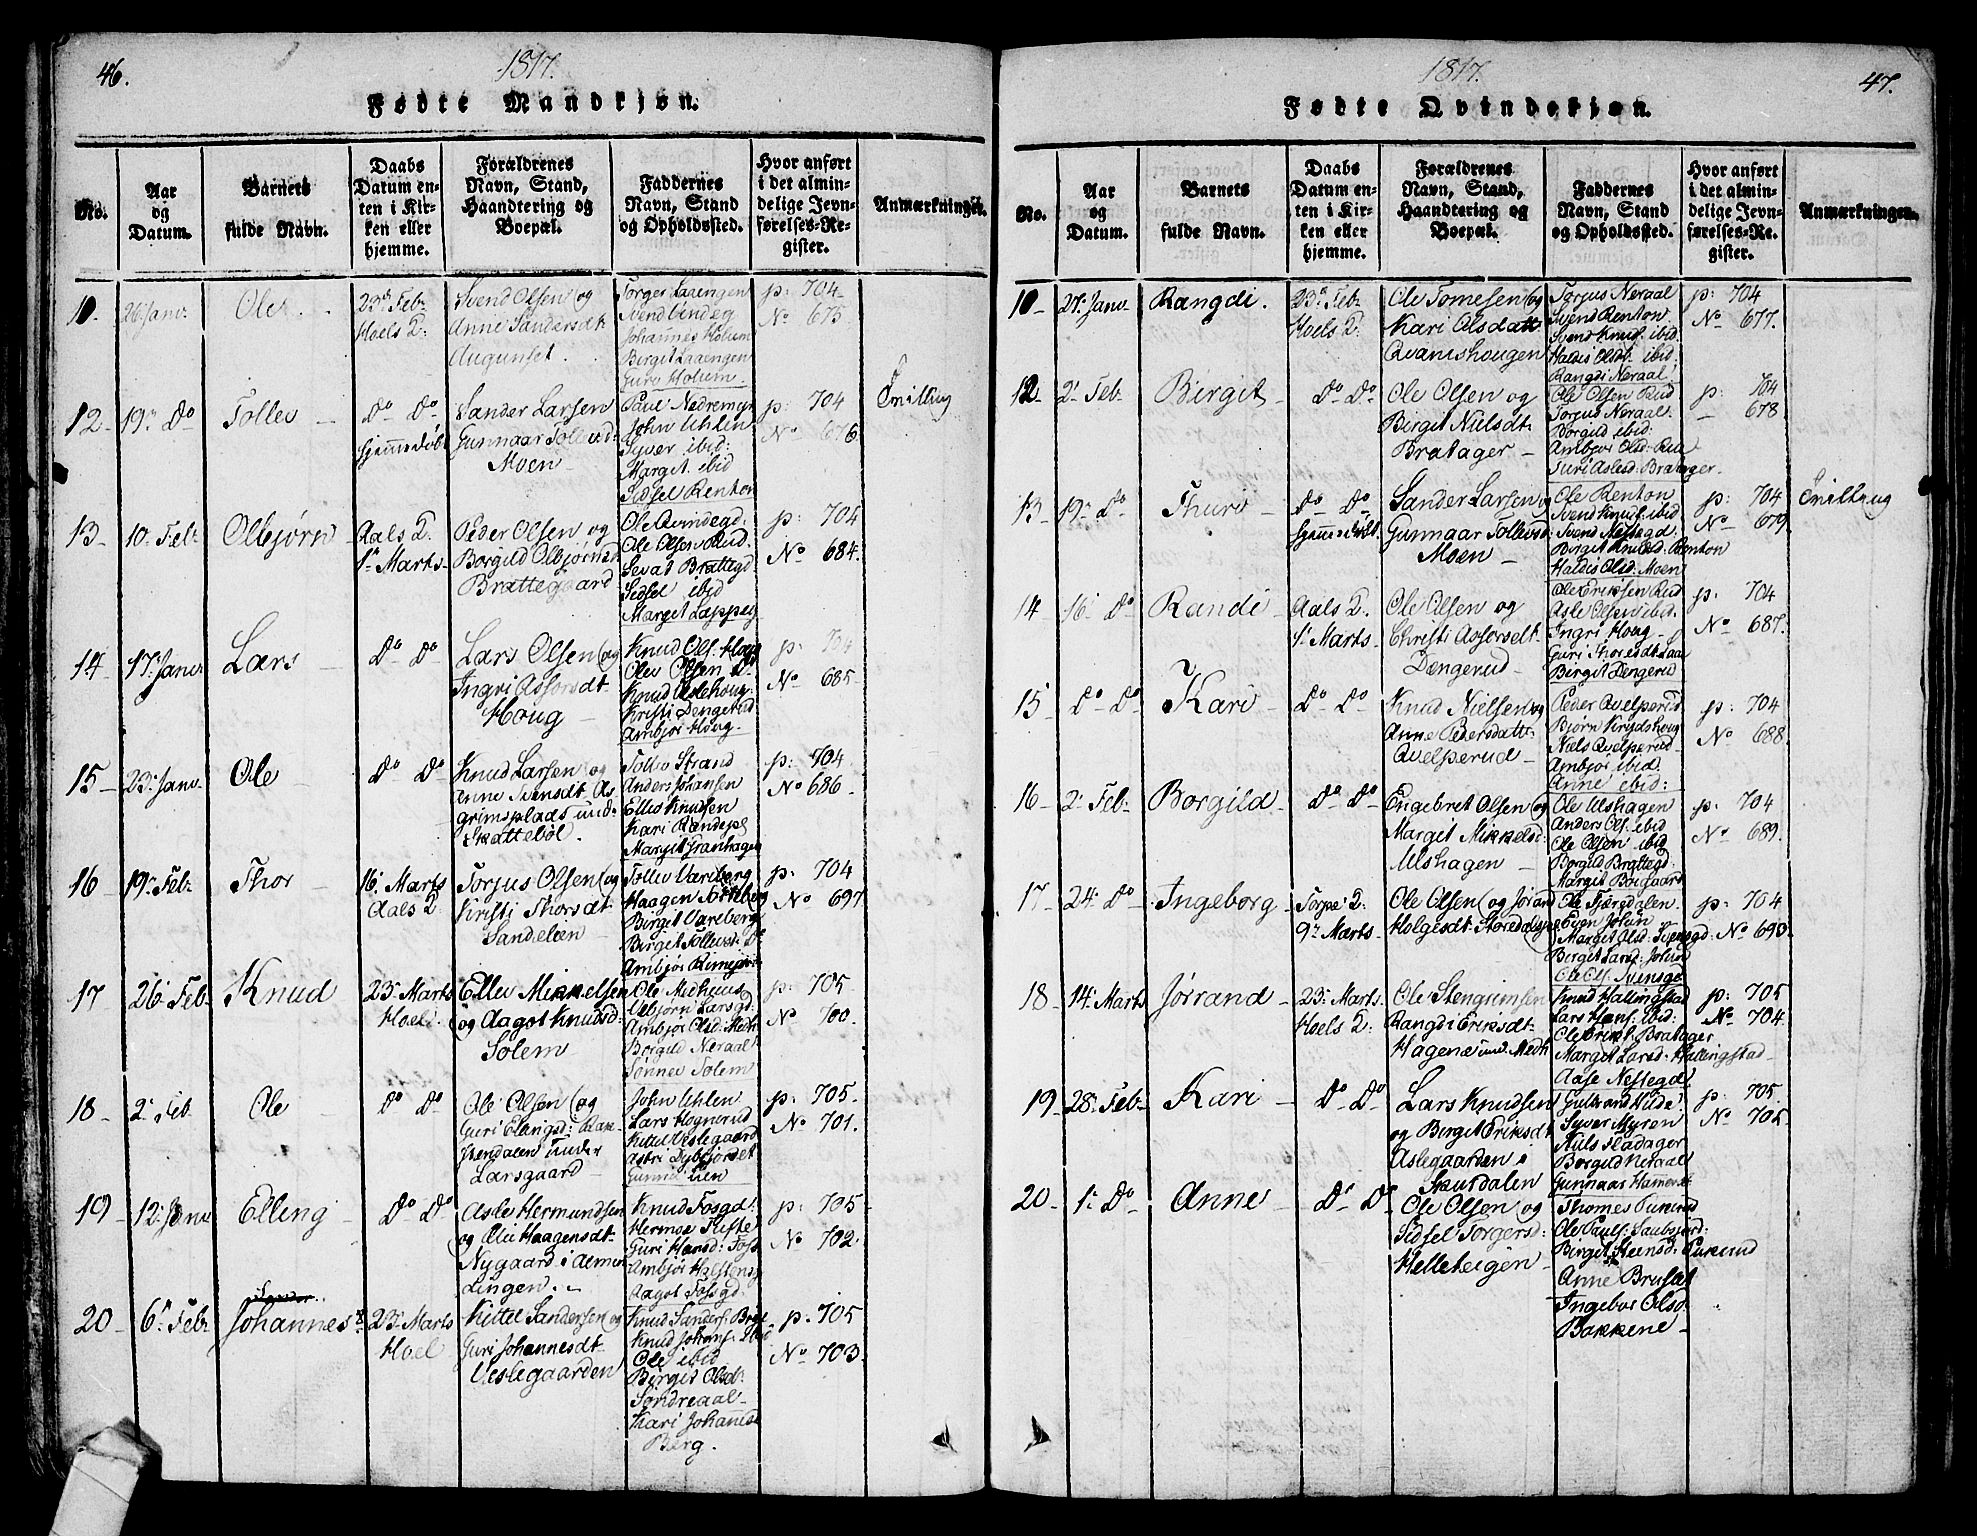 46.
1817.
Fødte Mandkjøn.
No.
Aar og Datum.
Barnets fulde Navn.
Daabs Datum enten i Kirken eller hjemme.
Forældrenes Navn, Stand, Haandtering og Boepæl.
Faddernes Navn, Stand og Opholdssted.
Hvor anført i det almindelige Jevnførelses-Register.
Anmærkninger.
11. 26. Janv. Ole
23de Feb. Hoels K.
Svend Olsen og
Anne Sandersdt.
Augunset.
Torger Laaengen
Svend
Johannes Holum
Birgit Laaengen
Guri Holum.
p: 704
No 675
12 19. Do Tollev
Do Do
Hjemmedøbt
Sander Larsen
Gunnaar Tollevsd:
Moen
Paul Nedremyr
John Uhlen
Syver ibid:
Marget ibid
Sidsel Renton
p: 704
No 676
Tvilling
13 10. Feb: Olbjørn
Aals K.
1. Marts
Peder Olsen og
Borgild Olbjørnsd
Brattegaard
Ole Qvindegd.
Ole Olsen Rud.
Sevat Brattegd
Sidsel ibid
Marget
p: 704
No 684.
14 17. Janv: Lars
Do Do
Lars Olsen og
Ingri Asforsdt.
Houg
Knud Ols: Houg
Olev Olsen Do
Knud
Kristi Dengerud
Ambjør Houg.
p: 704
No 685.
15 23. Janv. Ole
Do Do
Knud Larsen og
Anne Svensdt. As
grimsplads und:
Skattebøl.
Tollev Strand
Anders Johansen
Ellev Knudsen
Kari
Margit Granhagen
p: 704
No 686.
16 19. Feb: Thor
16. Marts
Aals K.
Torjus Olsen og
Kristi Thorsdt.
Sandeleen
Tollev Vareberg
Haagen
Birgit Vareberg
Birgit Tollevsd: Do
Ambjør
p: 704
No 697
17 26. Feb. Knud
23. Marts
Hoel.
Ellev Mikkelsen
og Aagot Knudsd:
Solem
Ole Medhuus
Olbjørn Larsgd:
Ambjør Olsd: Medh
Borgild Neraal
Sønnev Solem
p: 705
No 700.
18 2. Feb. Ole
Do Do
Ole Olsen og
Guri Elangsd:
under
Larsgaard
John Uhlen
Lars Hognerud
Kittel Veslegaard
Astri
Gunnil Lien
p: 705.
No 701.
19 12. Janv Elling
Do Do
Asle Hermundsen
og Haagensdt.
Nygaard i Aemen
Lingen.
Knud Fosgd.
Hermoe
Guri Hansd: Foss
Ambjør Halstens
Aagot Fossgd.
p: 705
No 702.
20 6. Feb: Johannes
23. Marts
Hoel
Kittel Sandersen og
Guri Johannesdt.
Veslegaarden
Knud Sanders:
Knud Johans:
Ole ibid
Birgit Olsd:
Søndreaal
Kari Johannesd
Berg.
p: 705
No 703.
47.
1817.
Fødte Qvindekjøn.
No.
Aar og Datum.
Barnets fulde Navn.
Daabs Datum enten i Kirken eller hjemme.
Forældrenes Navn, Stand, Haandtering og Boepæl.
Faddernes Navn, Stand og Opholdssted.
Hvor anført i det almindelige Jevnførelses-Register.
Anmærkninger.
11. 27. Janv. Rangdi.
23de Feb.
Hoels K.
Ole Tomesen og
Kari Olsdatt.
Qvanishougen
Torjus Neraal
Svend Renton
Svend Knuds: ibid
Haldis Olsdt. ibid
Rangdi Neraal
p: 704
No 677.
12 2. Feb. Birgit
Do Do
Ole Olsen og
Birgit Nielsdt.
Bratager
Ole Olsen Rud
Torjus Neraal.
Borgild ibid:
Ambjør Olsd: Rud
Guri Aslesd: Bratager.
p: 704
678.
13 19. Do Thuri
Do Do
Hjemmedøbt
Sander Larsen og
Gunnaar Tollevsd
Moen
Ole Renton
Svend Knuds: ibid
Svend Nestegd:
Birgit Knudsd: Renton
Haldis Olsd: Moen
p: 704
No 679
Tvilling
14 16. Do Randi
Aals K.
1. Marts
Ole Olsen og
Christi Asforsdt.
Dengerud
Ole Eriksen Rud
Asle Olsen ibid:
Ingri Houg
Guri Thoresdt.
Birgit Dengerud
p: 704
No 687.
15 Do Do Kari
Do Do
Knud Nielsen og
Anne Pedersdatt.
Qvelperud
Peder Qvelperud
Bjørn
Niels Qvelperud
Ambjør ibid
Anne ibid:
p: 704
No 688.
16 2. Feb: Borgild
Do Do
Engebret Olsen og
Margit Mikkelsd:
Ulshagen
Ole Ulshagen
Anders Ols: ibid
Ole Olsen ibid
Borgild Brattegd:
Margit
p: 704
No 689.
17 24. Do Ingeborg
Torpe K:
9. Marts
Ole Olsen og Jørand
Holgesdt.
Ole
Even
Marget Olsd: Svensgd:
Birget Larsd:
Ole Ols: Svensgd
p: 704
No 693.
18 14. Marts Jørrand
23. Marts
Hoels K:
Ole Stengrimsen
Rangdi Eriksdt.
Hagene und Medh
Knud Hallingstad
Lars Hans: ibid:
Ole Erik: Bratager
Marget Larsd: Hallingstad
Aase Nestegd
p: 705
No 704.
19 28. Feb: Kari
Do Do
Lars Knudsen
og Birget Eriksdt
Aslegaarden i
Skurdalen
Gulbrand
Syver Myren
Niels
Borgild Neraal
Gunnaar
p: 705.
No 705
20 1. Do Anne
Do Do
Ole Olsen og
Sidsel Torgersd:
Helleteigen
Thomes
Ole Pauls:
Birget Steensd:
Anne Bruset
Ingebor Olsd.
Bakkene